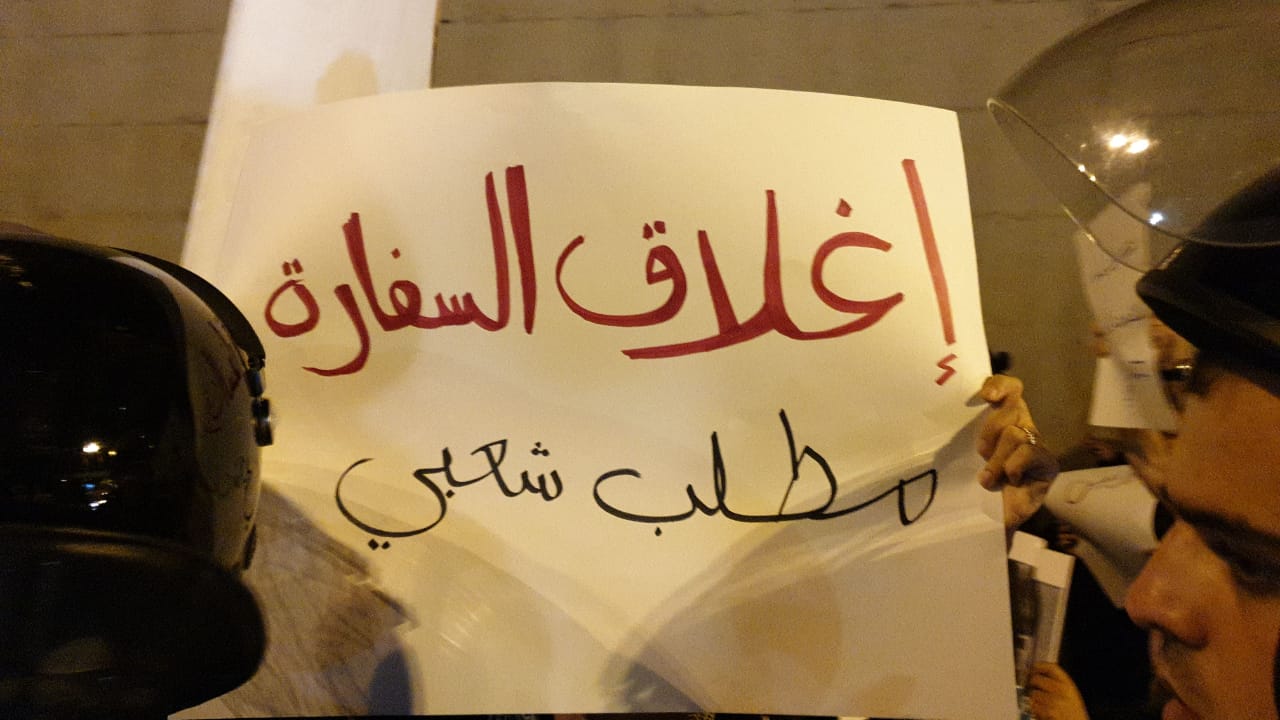 إغلاق السفارة
مطلب شعبي